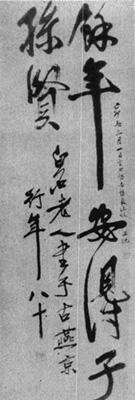 餘年安得子
孫賢
白石老人書于古燕京
行年八十